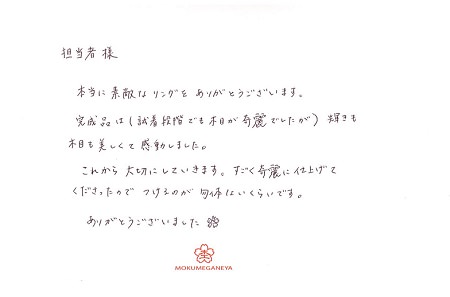 担当者様
本当に素敵なリングをありがとうございます。
完成品は(試着段階でも木目が奇麗でしたが)輝きも
木目も美しくて感動しました。
これから大切にしていきます。すごく奇麗に仕上げて
くださったのでつけるのが勿体ないくらいです。
ありがとうございました
MOKUMEGANEYA